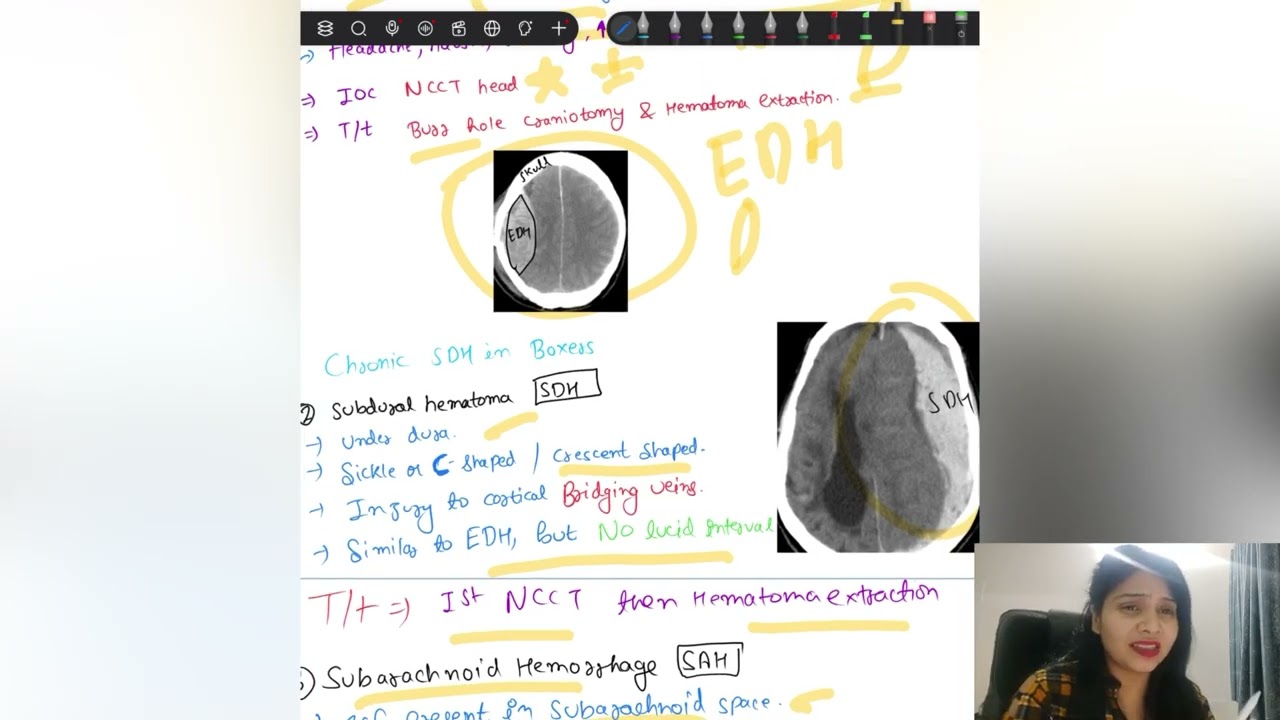 Headache,
=> IOC NCCT head
=> T/t Burr hole craniotomy & Hematoma extraction.
EDH
skull
EDH
Chronic SDH in Boxers
② Subdural hematoma SDH
→ Under dura.
→ Sickle or C-shaped / crescent shaped.
→ Injury to cortical Bridging veins.
→ Similar to EDH, but No lucid interval
SDH
T/t => Ist NCCT then Hematoma extraction
Subarachnoid Hemorrhage SAH
present in subarachnoid space.